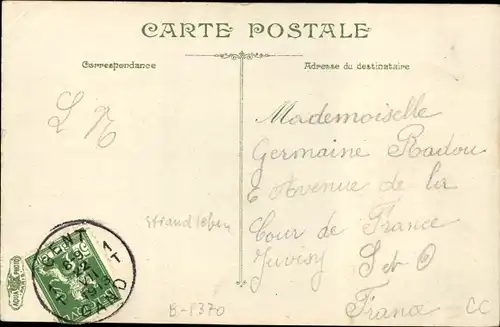 CARTE POSTALE
Correspondance
Adresse du destinataire
Mademoiselle
Germaine Radou
6 Avenue de la
Cour de France
Juvisy S et O
France
strandleben
B-1370
CC
GENT 1
GAND